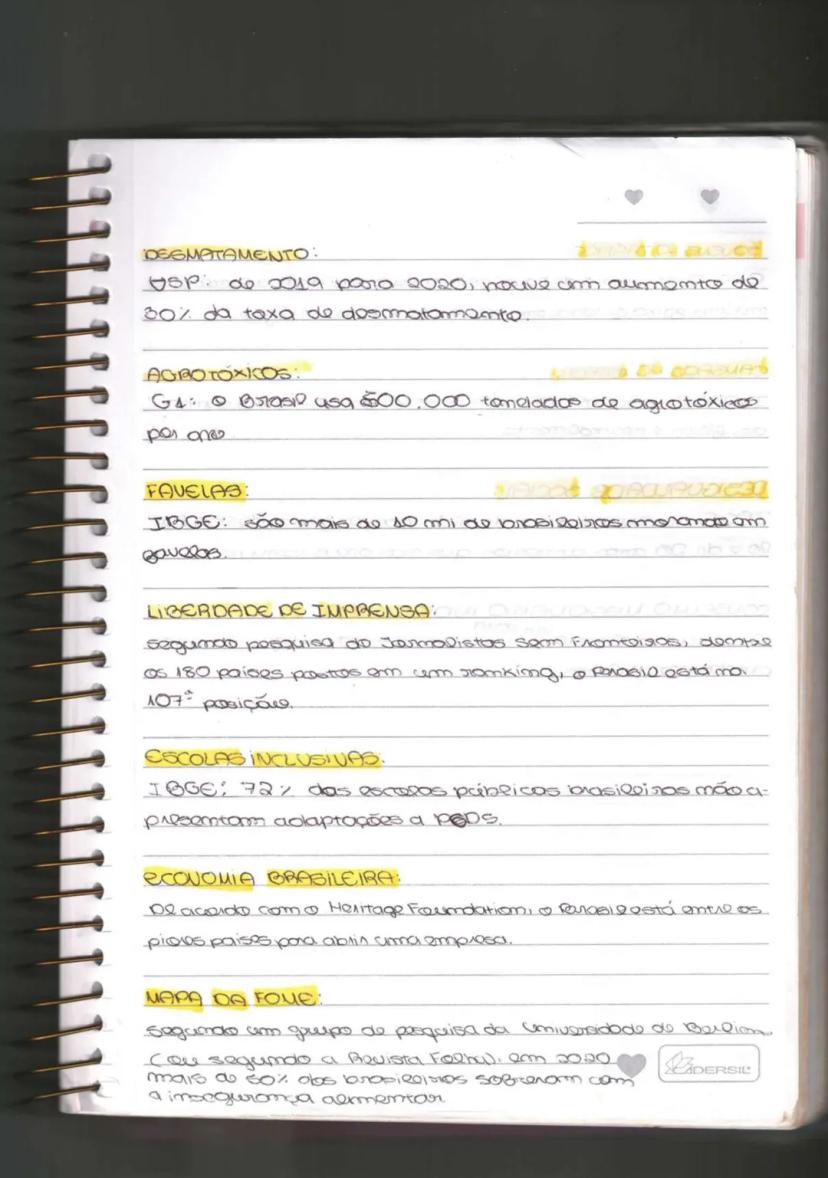 DESMATAMENTO:
USP: de 2019 para 2020, houve um aumento de
30% da taxa de desmatamento.
AGROTÓXICOS:
G1: o Brasil usa 500.000 toneladas de agrotóxicos
por ano
FAVELAS:
IBGE: são mais de 10 mi de brasileiros morando em
favelas.
LIBERDADE DE IMPRENSA:
segundo pesquisa do Jornalistas sem Fronteiras, dentre
os 180 países postos em um ranking, o Brasil está na
107ª posição.
ESCOLAS INCLUSIVAS:
IBGE: 72% das escolas públicas brasileiras não a-
presentam adaptações a PCDS.
ECONOMIA BRASILEIRA:
De acordo com o Heritage Foundation, o Brasil está entre os
piores países para abrir uma empresa.
MAPA DA FOME:
segundo um grupo de pesquisa da Universidade de Berlim,
(ou segundo a Revista Folha), em 2020
mais de 50% dos brasileiros sofreram com
a insegurança alimentar
CADERSIL